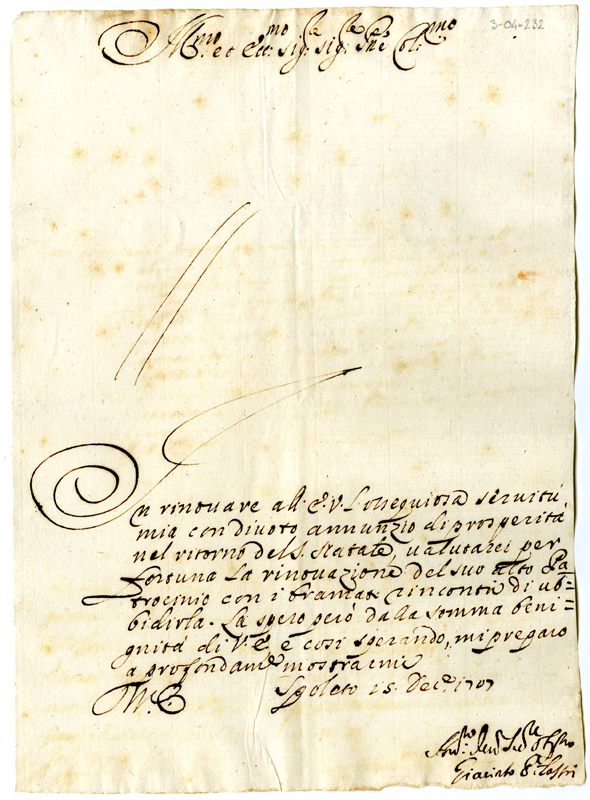 3-04-232
Ill.mo et Ecc.mo Sig.r Sig.r P.ne Col.mo
In rinovare all' E.V. l'ossequiosa servitù
mia con divoto annunzio di prosperità
nel ritorno del S. Natale, valutarei per
fortuna la rinovazione del suo alto Pa=
trocinio con i bramati rincontri di ub=
bidirla. La spero però dalla somma beni=
gnità di V.E. e così sperando, mi preparo
a profondam.e
Spoleto 15. Dec.e 1707
Giacinto